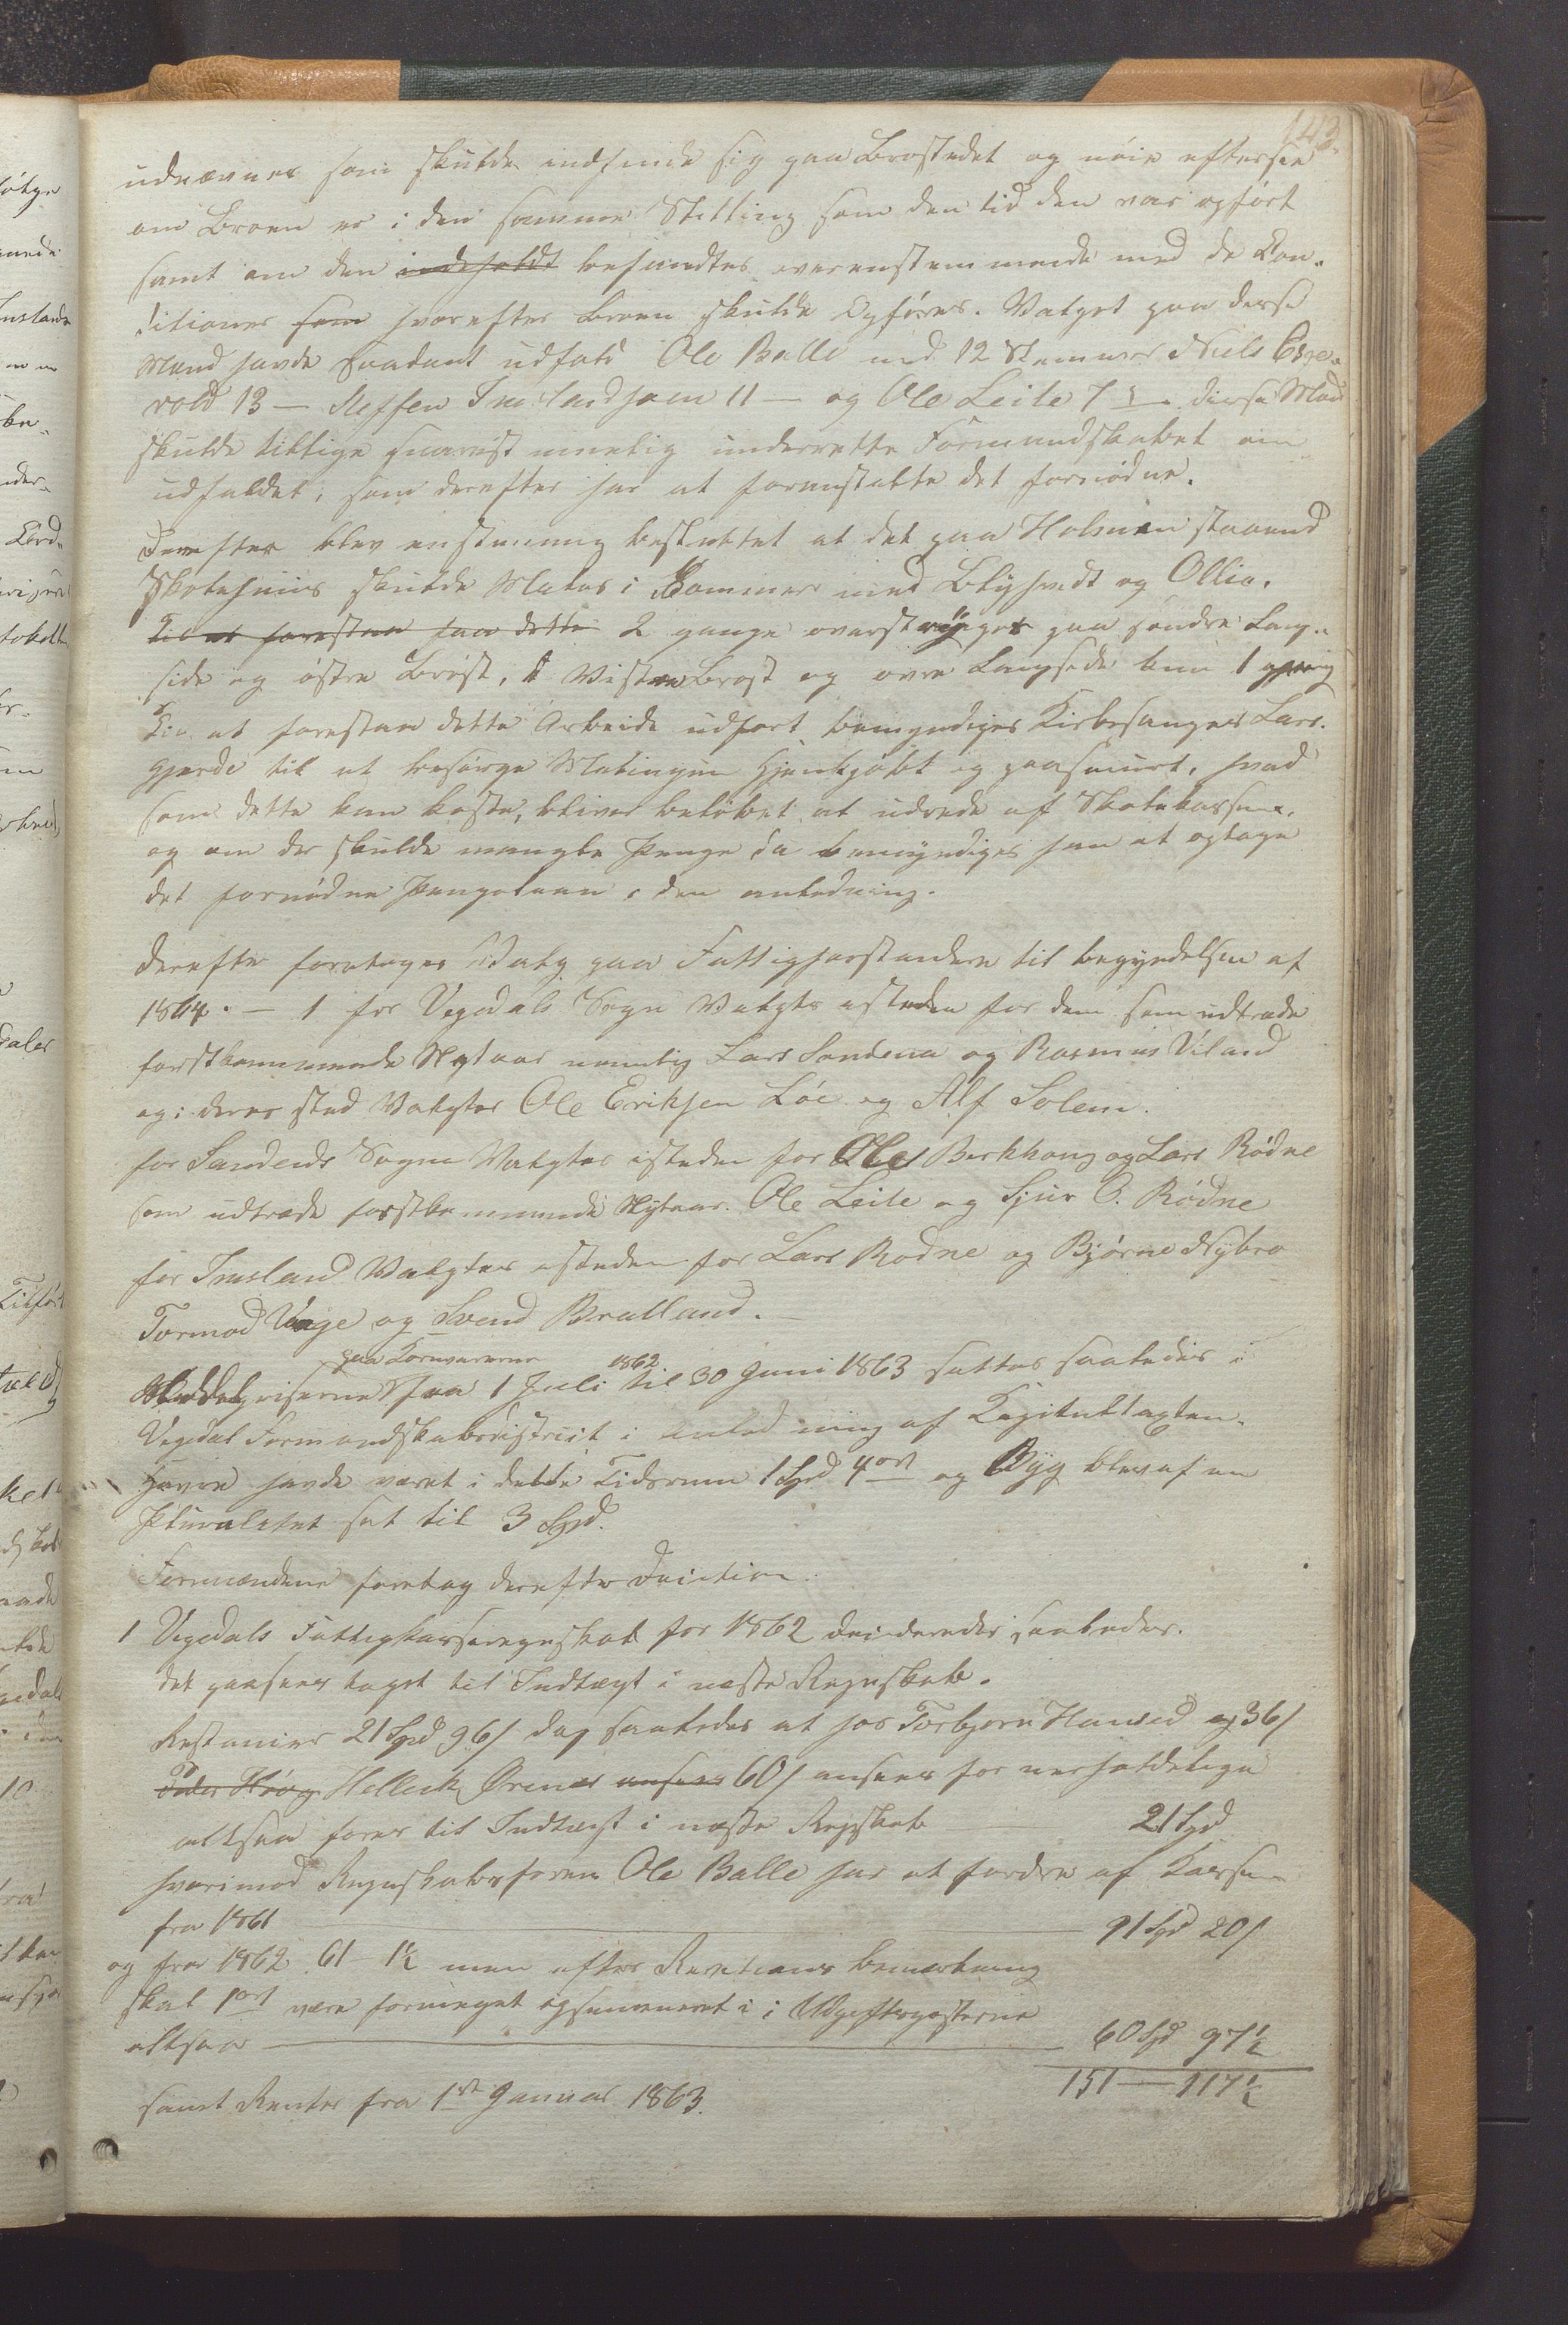 143.
udnævnes som skulde indfinde sig paa Brostedet og nöie efterse
om Broen er i den samme Stilling som den tid den var opfört
samt om den indeholdt befandtes overenstemmende med de Con-
ditioner som hvorefter Broen skulde Opföres. Valget paa desse
Mænd havde saadant udfald Ole Balle med 12 Stemmer Niels Espe-
vold 13 — Steffen Imslandsjoen 11 — og Ole Leite 7 — disse Mæd
skulde tillige snarest muelig underrette Formandskabet om
udfaldet, som derefter har at foranstalte det fornödne.
Derefter blev enstemmig besluttet at det paa Holmen staaend
Skolehuus skulde Males i Sommer med Blyhvidt og Ollie.
Til at forestaa faa dette 2 gange overstryges paa søndre Lang-
side og östre Bröst, Vestre Bröst og övre Langside kun 1 gang
Til at forestaa dette Arbeide udfort bemyndiges Kirkesanger Lars
Gjerde til at besörge Malingen Hjemkjöbt og paasmurt, hvad
som dette kan koste, bliver belöbet at udrede af Skolekassen.
og om der skulde mangle Penge da bemyndiges han at optage
det fornödne Pengelaan i den anledning.
Derefter foretages Valg paa Fattigforstandere til begyndelsen af
1864. — 1 for Vigedals Sogn Valgts isteden for dem som udtræde
forstkommende Nytaar nemlig Lars Sandena og Rasmus Viland
og i deres sted Valgtes Ole Eriksen Löe og Alf Solem.
for Sandeids Sogn Valgtes isteden for Ole Berkhoug og Lars Rödne
som udtræde forstkommende Nytaar. Ole Leite og Sjur O. Rödne
for Imsland Valgtes isteden for Lars Rodne og Bjørne Nybro
Tormod Vaage og Svend Bratland.
paa Kornvarerne 1862
Middelpriserne fra 1 Juli til 30 Juni 1863 sattes saaledes i
Vigedal Formandskabsdistrict i anledning af Kapitultaxten.
Havre havde været i dette Tidsrum 1 Spd 4 ort og Byg blev af en
Pluralitet sat til 3 Spd.
Formændene foretog derefter Decition.
1 Vigedals Fattigkasseregnskab for 1862 Decideredes saaledes.
Det paasees taget til Indtægt i næste Regnskab.
Restancer 21 Spd 96 / dog saaledes at hos Torbjørn Hansed 36 /
Peder Hroeg Helleik Ørenes ansees 60 / ansees for uerholdelige
altsaa fores til Indtægt i næste Regskab 21 Spd
hvorimod Regnskabsforen Ole Balle har at fordre af Kassen
fra 1861 — 91 Spd 20 /
og fra 1862 61 - 1½ men efter Revitions bemærkning
skal 1 ort være formeget opsummeret i i Udgiftsposterne
altsaa — 60 Spd 97½
151 — 117½
samt Renter fra 1ste Januar 1863.